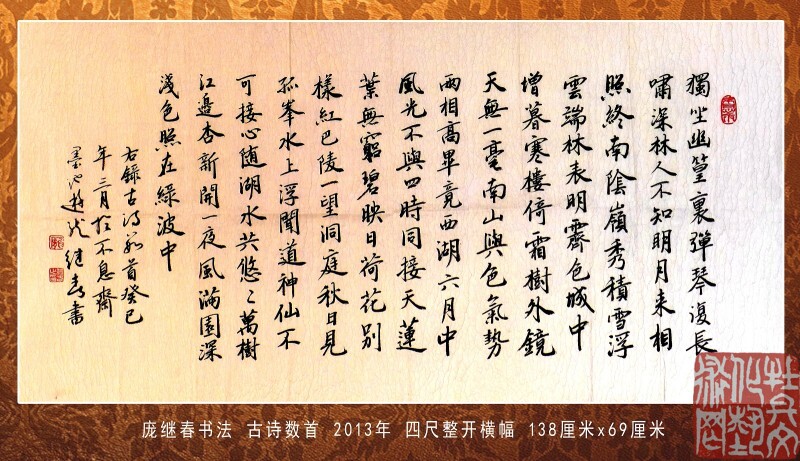 獨坐幽篁裏彈琴復長
嘯深林人不知明月來相
照終南陰嶺秀積雪浮
雲端林表明霽色城中
增暮寒樓倚霜樹外鏡
天無一毫南山與色氣勢
兩相高畢竟西湖六月中
風光不與四時同接天蓮
葉無窮碧映日荷花別
樣紅巴陵一望洞庭秋日見
孤峯水上浮聞道神仙不
可接心随湖水共悠々萬樹
江邉杏新開一夜風滿園深
淺色照在綠波中
右録古诗數首癸巳
年三月於不息齋
墨池遊龙継春書
庞继春书法 古诗数首 2013年 四尺整开横幅 138厘米x69厘米